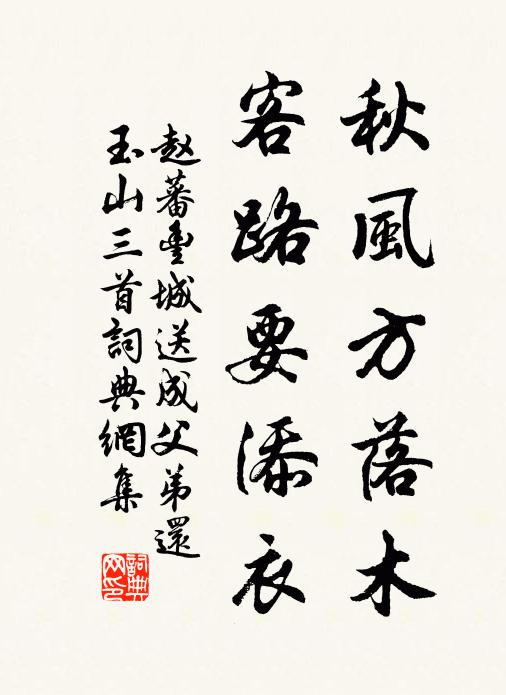 秋風方落木
客路要添衣
赵蕃豊城送成父弟還
玉山三首詞典網集
詞典
网印